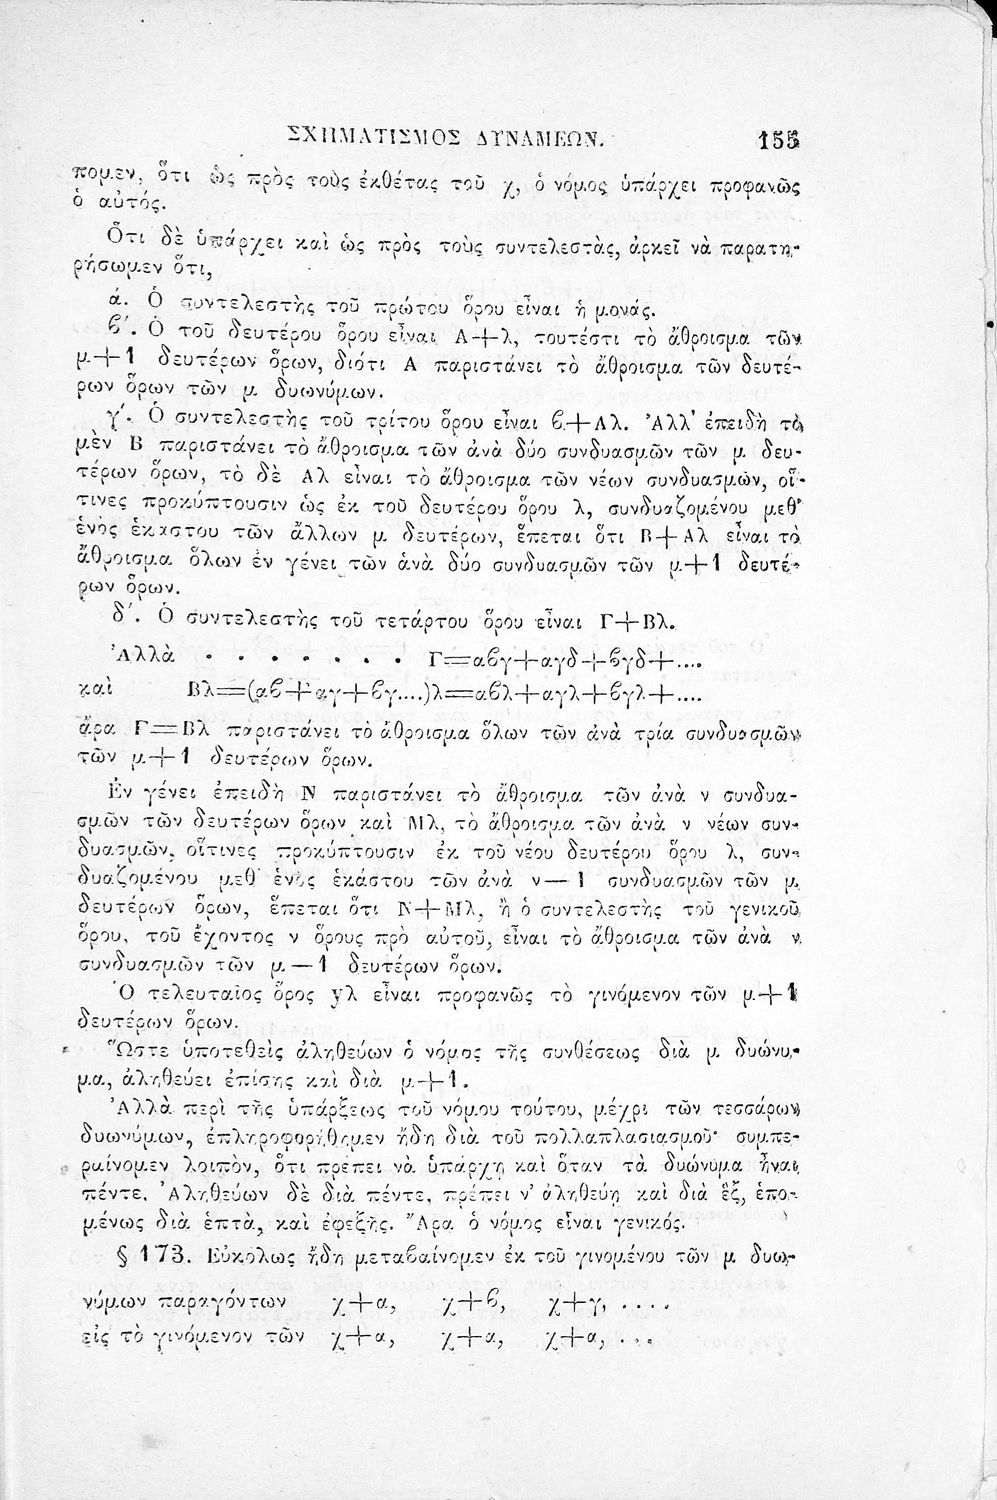 ΣΧΗΜΑΤΙΣΜΟΣ ΔΥΝΑΜΕΩΝ. 155
πομεν, ὅτι ὡς πρὸς τοὺς ἐκθέτας τοῦ χ, ὁ νόμος ὑπάρχει προφανῶς
ὁ αὐτός.
Ὅτι δὲ ὑπάρχει καὶ ὡς πρὸς τοὺς συντελεστὰς, ἀρκεῖ νὰ παρατη-
ρήσωμεν ὅτι,
ά. Ὁ συντελεστὴς τοῦ πρώτου ὅρου εἶναι ἡ μονάς.
β΄. Ὁ τοῦ δευτέρου ὅρου εἶναι Α+λ, τουτέστι τὸ ἄθροισμα τῶν
μ+1 δευτέρων ὅρων, διότι Α παριστάνει τὸ ἄθροισμα τῶν δευτέ-
ρων ὅρων τῶν μ δυωνύμων.
γ΄. Ὁ συντελεστὴς τοῦ τρίτου ὅρου εἶναι β+Αλ. Ἀλλ' ἐπειδὴ τὸ
μὲν Β παριστάνει τὸ ἄθροισμα τῶν ἀνὰ δύο συνδυασμῶν τῶν μ δευ-
τέρων ὅρων, τὸ δὲ Αλ εἶναι τὸ ἄθροισμα τῶν νέων συνδυασμῶν, οἵ-
τινες προκύπτουσιν ὡς ἐκ τοῦ δευτέρου ὅρου λ, συνδυαζομένου μεθ'
ἑνὸς ἑκάστου τῶν ἄλλων μ δευτέρων, ἕπεται ὅτι Β+Αλ εἶναι τὸ
ἄθροισμα ὅλων ἐν γένει τῶν ἀνὰ δύο συνδυασμῶν τῶν μ+1 δευτέ-
ρων ὅρων.
δ΄. Ὁ συντελεστὴς τοῦ τετάρτου ὅρου εἶναι Γ+Βλ.
Ἀλλὰ . . . . . . . Γ=αβγ+αγδ+βγδ+....
καὶ Βλ=(αβ+αγ+βγ....)λ=αβλ+αγλ+βγλ+....
ἄρα Γ=Βλ παριστάνει τὸ ἄθροισμα ὅλων τῶν ἀνὰ τρία συνδυασμῶν
τῶν μ+1 δευτέρων ὅρων.
Ἐν γένει ἐπειδὴ Ν παριστάνει τὸ ἄθροισμα τῶν ἀνὰ ν συνδυα-
σμῶν τῶν δευτέρων ὅρων καὶ Μλ, τὸ ἄθροισμα τῶν ἀνὰ ν νέων συν-
δυασμῶν, οἵτινες προκύπτουσιν ἐκ τοῦ νέου δευτέρου ὅρου λ, συν-
δυαζομένου μεθ' ἑνὸς ἑκάστου τῶν ἀνὰ ν—1 συνδυασμῶν τῶν μ
δευτέρων ὅρων, ἕπεται ὅτι Ν+Μλ, ἢ ὁ συντελεστὴς τοῦ γενικοῦ
ὅρου, τοῦ ἔχοντος ν ὅρους πρὸ αὐτοῦ, εἶναι τὸ ἄθροισμα τῶν ἀνὰ ν
συνδυασμῶν τῶν μ—1 δευτέρων ὅρων.
Ὁ τελευταῖος ὅρος yλ εἶναι προφανῶς τὸ γινόμενον τῶν μ+1
δευτέρων ὅρων.
Ὥστε ὑποτεθεὶς ἀληθεύων ὁ νόμος τῆς συνθέσεως διὰ μ δυώνυ-
μα, ἀληθεύει ἐπίσης καὶ διὰ μ+1.
Ἀλλὰ περὶ τῆς ὑπάρξεως τοῦ νόμου τούτου, μέχρι τῶν τεσσάρων
δυωνύμων, ἐπληροφορήθημεν ἤδη διὰ τοῦ πολλαπλασιασμοῦ· συμπε-
ραίνομεν λοιπὸν, ὅτι πρέπει νὰ ὑπάρχῃ καὶ ὅταν τὰ δυώνυμα ἦναι
πέντε. Ἀληθεύων δὲ διὰ πέντε, πρέπει ν' ἀληθεύῃ καὶ διὰ ἓξ, ἑπο-
μένως διὰ ἑπτὰ, καὶ ἐφεξῆς. Ἄρα ὁ νόμος εἶναι γενικός.
§ 173. Εὐκόλως ἤδη μεταβαίνομεν ἐκ τοῦ γινομένου τῶν μ δυω-
νύμων παραγόντων χ+α, χ+β, χ+γ, ....
εἰς τὸ γινόμενον τῶν χ+α, χ+α, χ+α, ...